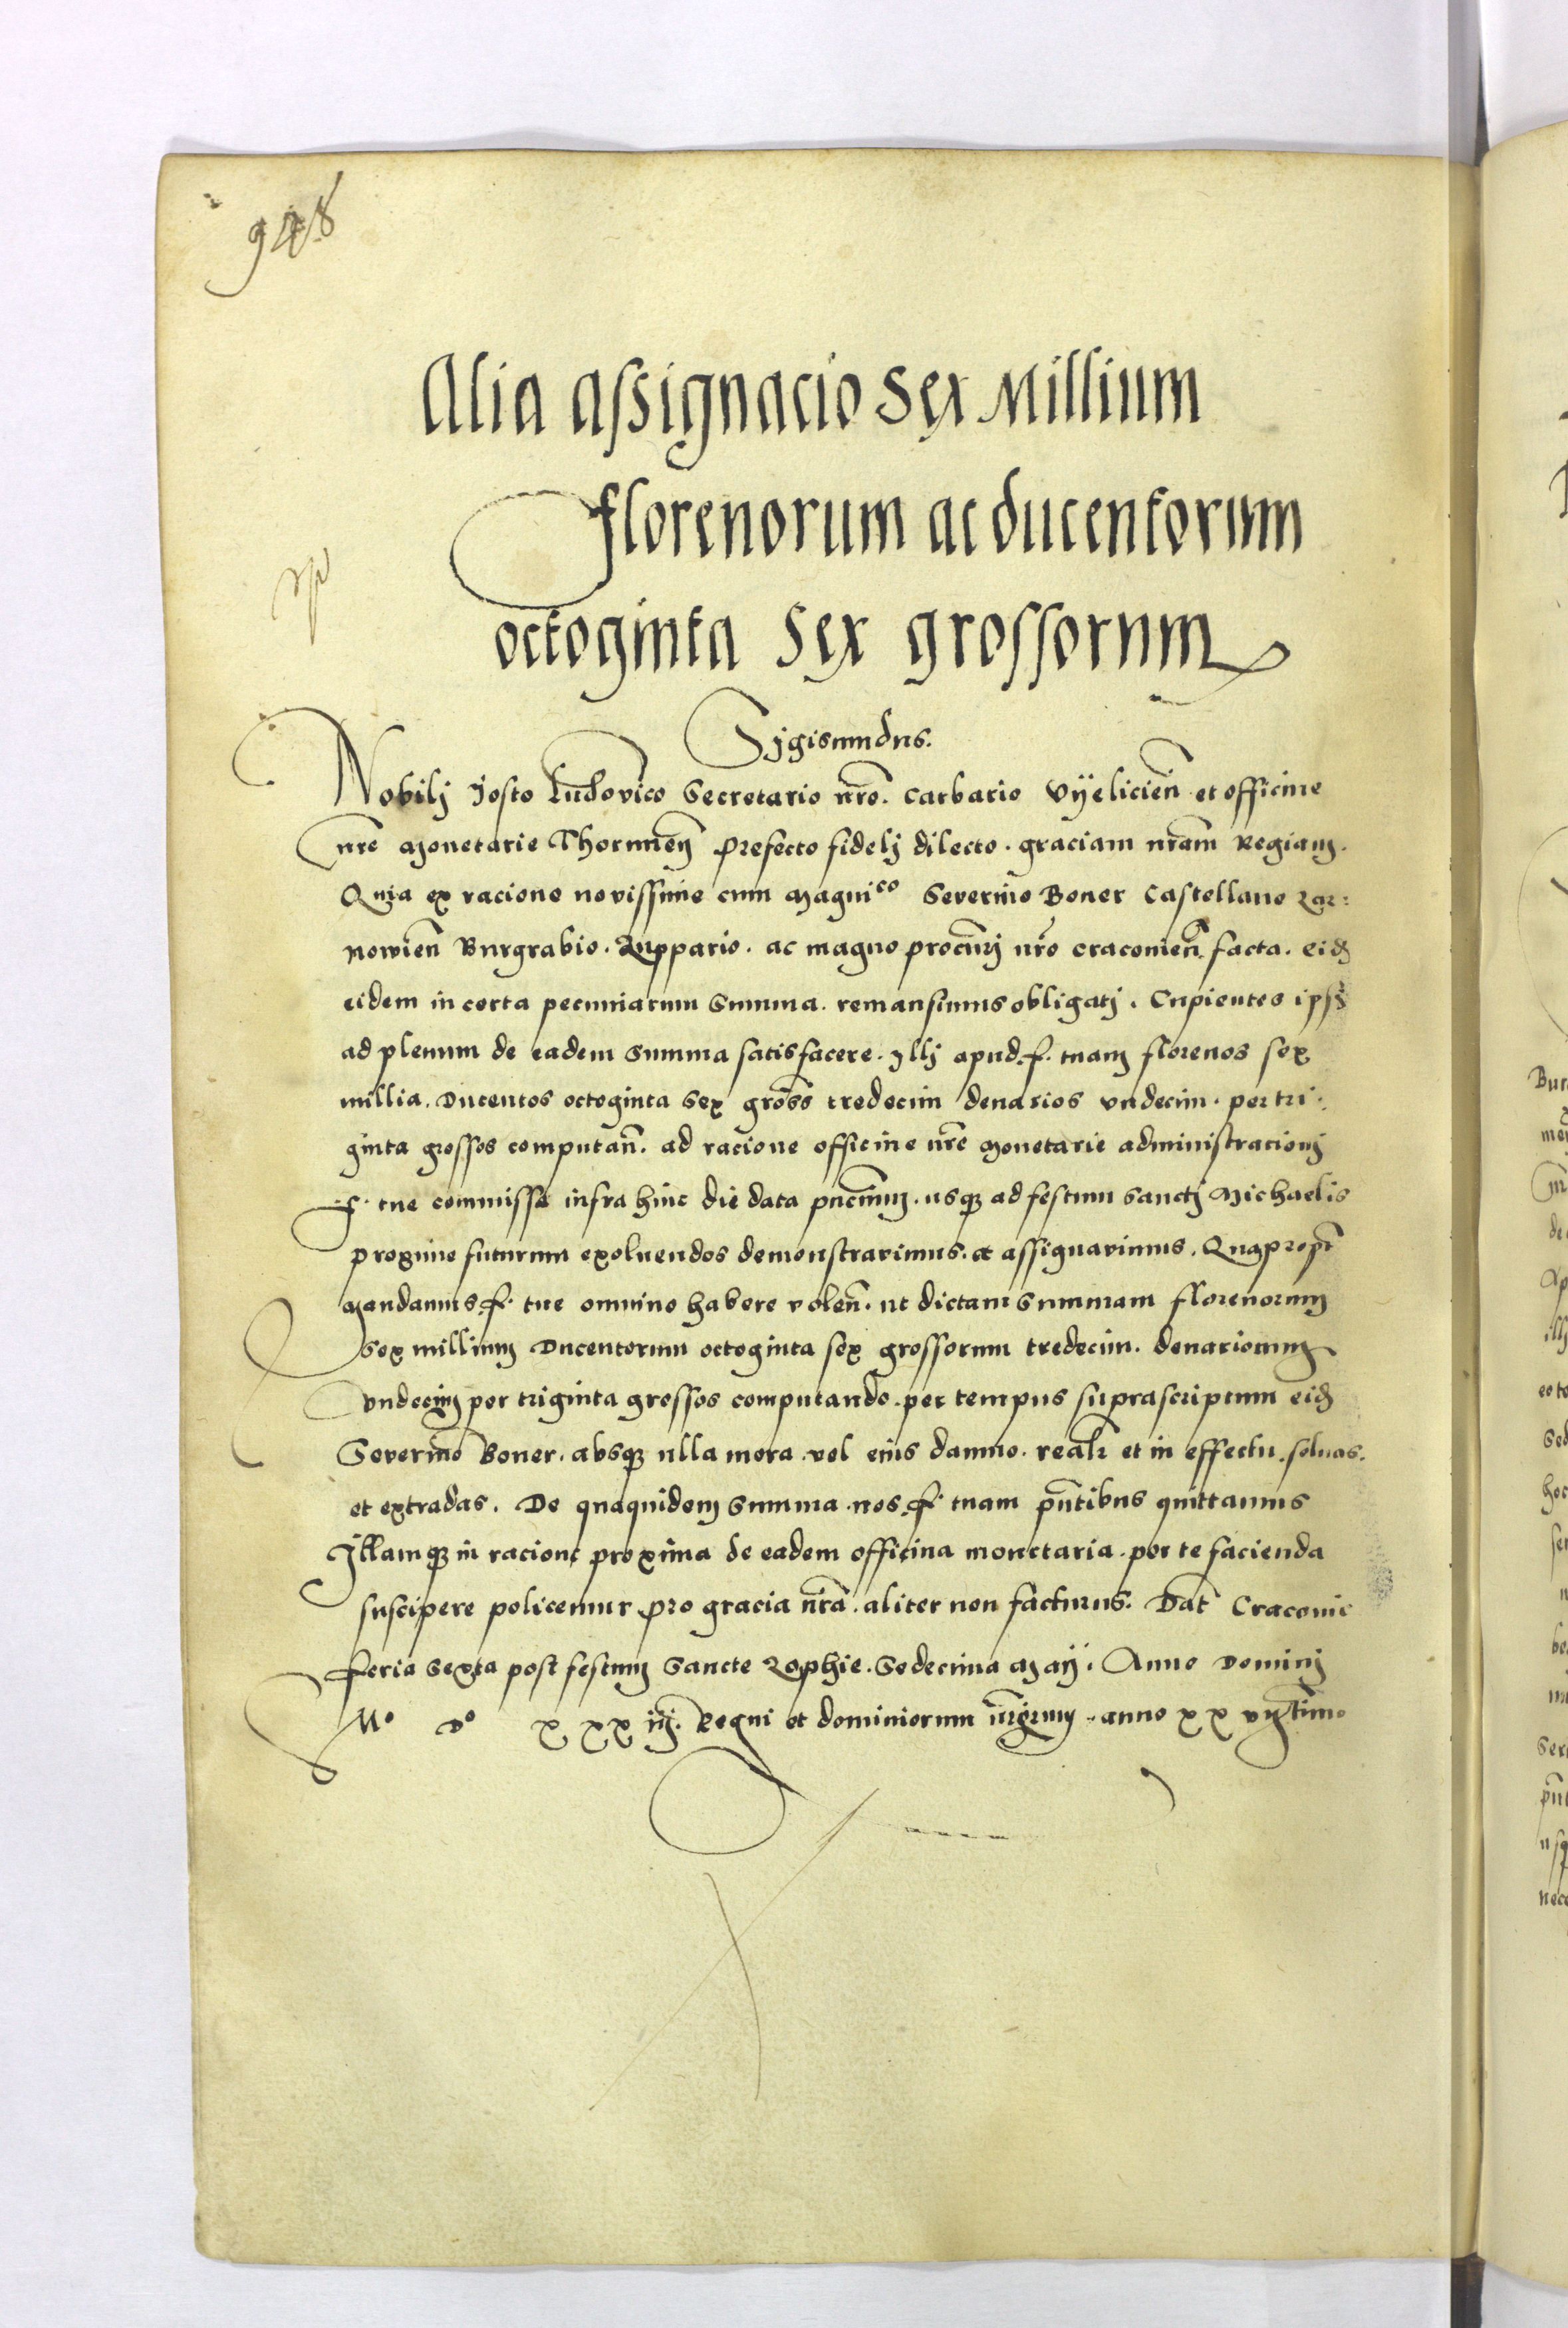 948
Alia assignacio Sex Millium
florenorum ac ducentorum
octoginta Sex grossorum
Sigismundus.
Nobilj Josto Ludovico Secretario nr̃o. carbario Vyeliciẽn et officine
nr̃e Monetarie Thorunieñ prefecto fidelj dilecto. graciam nr̃am Regiam.
Quia ex racione novissime cum Magnico Severino Boner Castellano Zar:
nowieñ Burgrabio. Zuppario. ac magno procur̃j nr̃o cracovieñ facta. eid̃
eidem in certa pecuniarum summa. remansimus obligatj. Cupientes ipsj
ad plenum de eadem summa satisfacere. Illj apud. f. tuam florenos sex
millia. Ducentos octoginta sex gros̃s tredecim denarios undecim. per tri:
ginta grossos computañ. ad racione officine nr̃e Monetarie administracionj
f. tue commisse infra hinc die data pñcium. usq̃ ad festum Sanctj Michaelis
proxime futurum exolvendos demonstravimus. et assignavimus. Quapropt̃
Mandamus. f. tue omnino habere voleñ. ut dictam summam florenorum
Sex millium Ducentorum octoginta sex grossorum tredecim. denariorum
undecim per triginta grossos computando. per tempus suprascriptum eid̃
Severino Boner. absq̃ ulla mora. vel eius damno. realr̃ et in effectu. solvas.
et extradas. De quaquidem summa nos. f. tuam pñtibus quittamus
Illamq̃ in racione proxima de eadem officina monetaria. per te facienda
suscipere policemur pro gracia nr̃a. aliter non facturus. Dat̃ Cracovie
feria sexta post festum Sancte Zophie. Sedecima Maij. Anno Dominj
Mo Do XXX iij. Regni et dominiorum nr̃orum. anno XX vijtimo